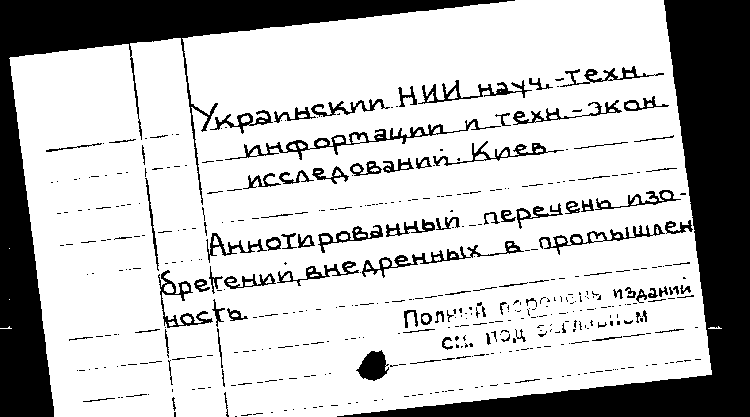 Украинский НИИ науч.-техн.
информации и техн.-экон.
исследований. Киев.
Аннотированный перечень изо-
бретений, внедренных в промышлен
ность.
Полный перечень изданий
см. под заглавием